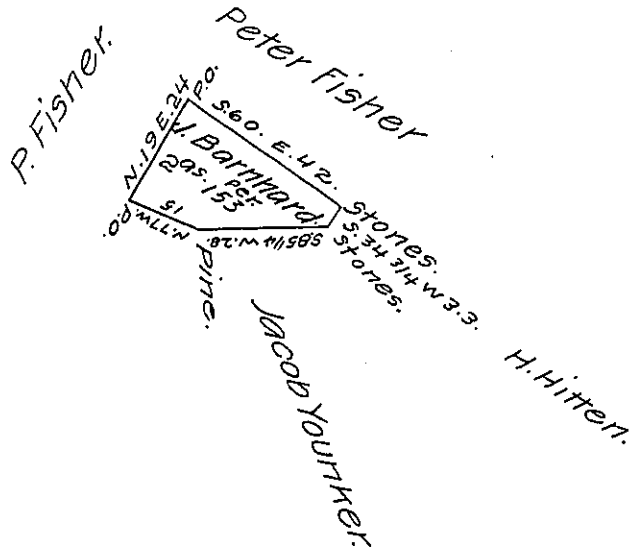 Peter Fisher
P. Fisher.
P.O.
N. 19 E. 24
S. 60. E. 42.
J. Barnhard.
2 as. 153
per
Stones.
S. 34 3/4 W 3.3.
Stones.
S 85 1/4 W. 28.
N. 77 W. 15
P.O.
Pine.
Jacob Younker.
H. Hitten.